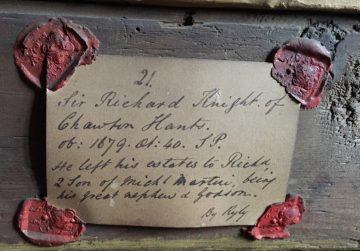 21.
Sir Richard Knight. of
Chawton Hants.
ob: 1679. Æt: 40. S.P.
He left his estates to Richd
2 Son of Michl Martin, being
his great nephew & Godson.
By Ryly